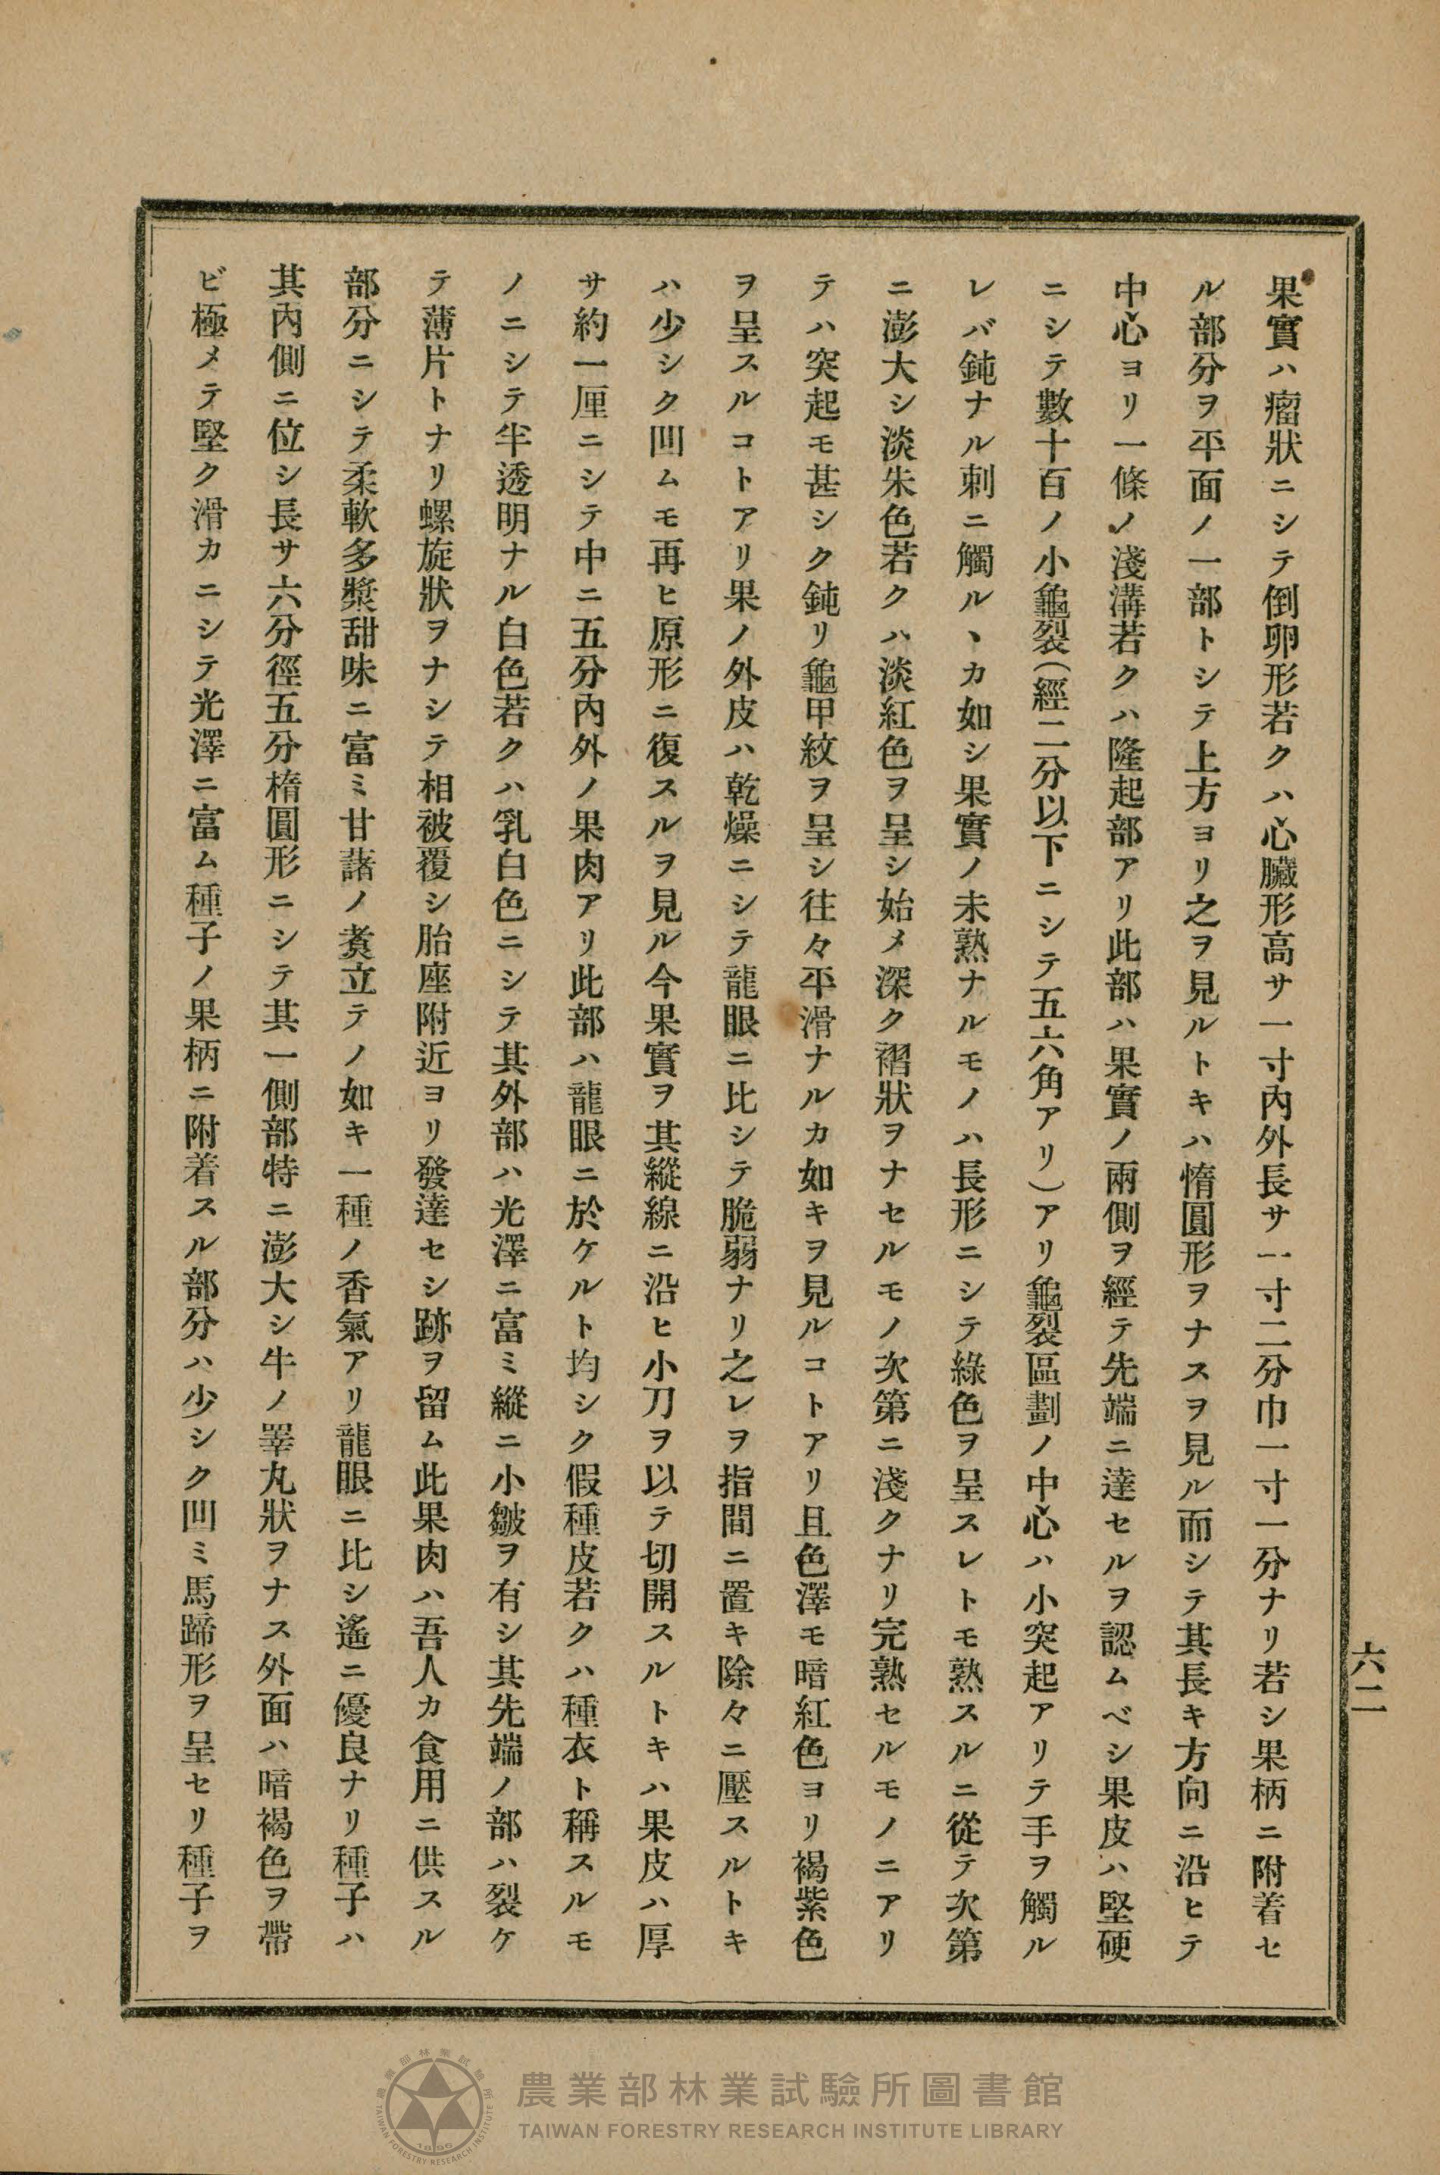 果實ハ瘤狀ニシテ倒卵形若クハ心臟形高サ一寸內外長サ一寸二分巾一寸一分ナリ若シ果柄ニ附着セ
ル部分ヲ平面ノ一部トシテ上方ヨリ之ヲ見ルトキハ惰圓形ヲナスヲ見ル而シテ其長キ方向ニ沿ヒテ
中心ヨリ一條ノ淺溝若クハ隆起部アリ此部ハ果實ノ兩側ヲ經テ先端ニ達セルヲ認ムベシ果皮ハ堅硬
ニシテ數十百ノ小龜裂(經二分以下ニシテ五六角アリ)アリ龜裂區劃ノ中心ハ小突起アリテ手ヲ觸ル
レバ鈍ナル刺ニ觸ルヽカ如シ果實ノ未熟ナルモノハ長形ニシテ綠色ヲ呈スレトモ熟スルニ從テ次第
ニ澎大シ淡朱色若クハ淡紅色ヲ呈シ始メ深ク褶狀ヲナセルモノ次第ニ淺クナリ完熟セルモノニアリ
テハ突起モ甚シク鈍リ龜甲紋ヲ呈シ往々平滑ナルカ如キヲ見ルコトアリ且色澤モ暗紅色ヨリ褐紫色
ヲ呈スルコトアリ果ノ外皮ハ乾燥ニシテ龍眼ニ比シテ脆弱ナリ之レヲ指間ニ置キ除々ニ壓スルトキ
ハ少シク凹ムモ再ヒ原形ニ復スルヲ見ル今果實ヲ其縱線ニ沿ヒ小刀ヲ以テ切開スルトキハ果皮ハ厚
サ約一厘ニシテ中ニ五分內外ノ果肉アリ此部ハ龍眼ニ於ケルト均シク假種皮若クハ種衣ト稱スルモ
ノニシテ半透明ナル白色若クハ乳白色ニシテ其外部ハ光澤ニ富ミ縱ニ小皺ヲ有シ其先端ノ部ハ裂ケ
テ薄片トナリ螺旋狀ヲナシテ相被覆シ胎座附近ヨリ發達セシ跡ヲ留ム此果肉ハ吾人カ食用ニ供スル
部分ニシテ柔軟多漿甜味ニ富ミ甘藷ノ煑立テノ如キ一種ノ香氣アリ龍眼ニ比シ遙ニ優良ナリ種子ハ
其內側ニ位シ長サ六分徑五分楕圓形ニシテ其一側部特ニ澎大シ牛ノ睪丸狀ヲナス外面ハ暗褐色ヲ帶
ビ極メテ堅ク滑カニシテ光澤ニ富ム種子ノ果柄ニ附着スル部分ハ少シク凹ミ馬蹄形ヲ呈セリ種子ヲ
六二
農業部林業試驗所圖書館
TAIWAN FORESTRY RESEARCH INSTITUTE LIBRARY
農業部林業試驗所
TAIWAN FORESTRY RESEARCH INSTITUTE
1896